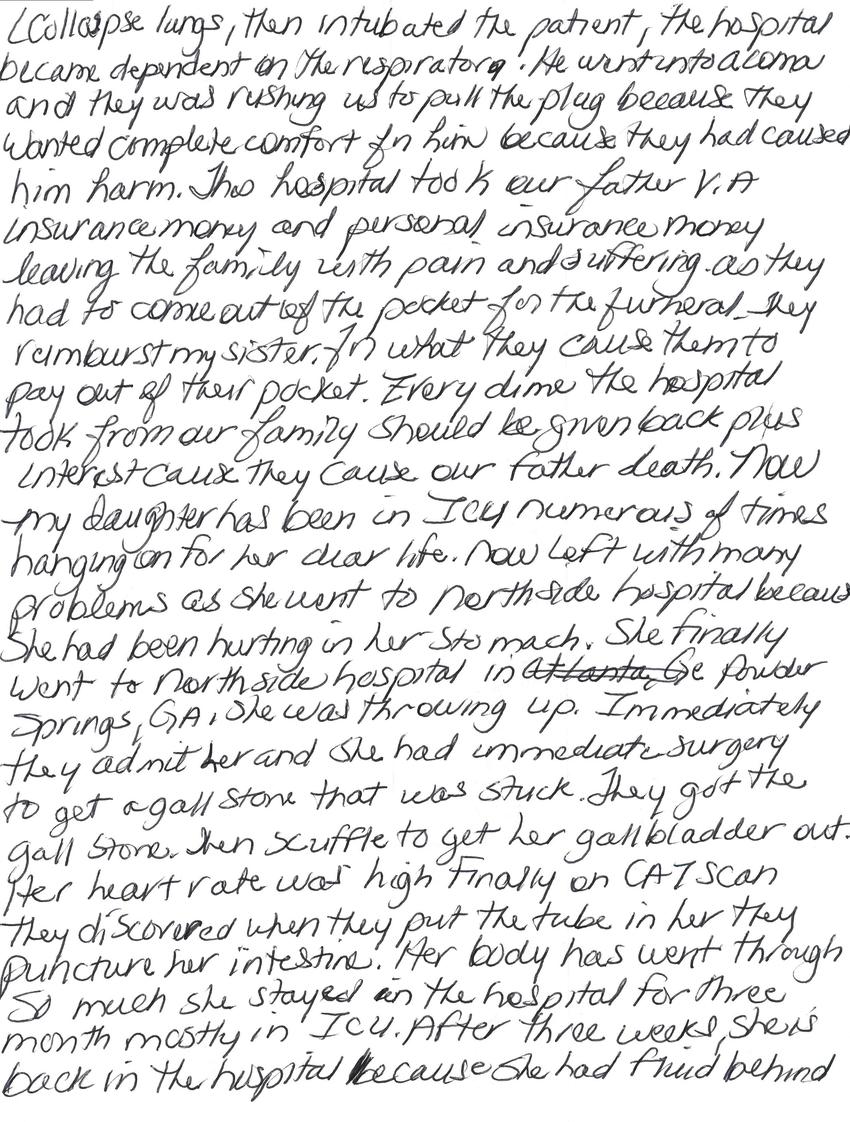 Collapse lungs, then intubated the patient, the hospital
became dependent on the respirator. He went into a coma
and they was rushing us to pull the plug because they
wanted complete comfort for him because they had caused
him harm. This hospital took our father V.A
insurance money and personal insurance money
leaving the family with pain and suffering. as they
had to come out of the pocket for the furneral. They
reimburst my sister. For what they cause them to
pay out of their pocket. Every dime the hospital
took from our family should be given back plus
interest cause they cause our father death. Now
my daughter has been in ICU numerous of times
hanging on for her dear life. Now left with many
problems as she went to northside hospital becaus
She had been hurting in her stomach. She finally
went to northside hospital in Atlanta, Ge Powder
Springs, GA, She was throwing up. Immediately
they admit her and she had immediate surgery
to get a gall stone that was stuck. They got the
gall stone. Then scuffle to get her gallbladder out.
Her heart rate was high Finally on CAT scan
they discovered when they put the tube in her they
puncture her intestine. Her body has went through
So much she stayed in the hospital for three
month mostly in ICU. After three weeks, she is
back in the hospital because she had fluid behind